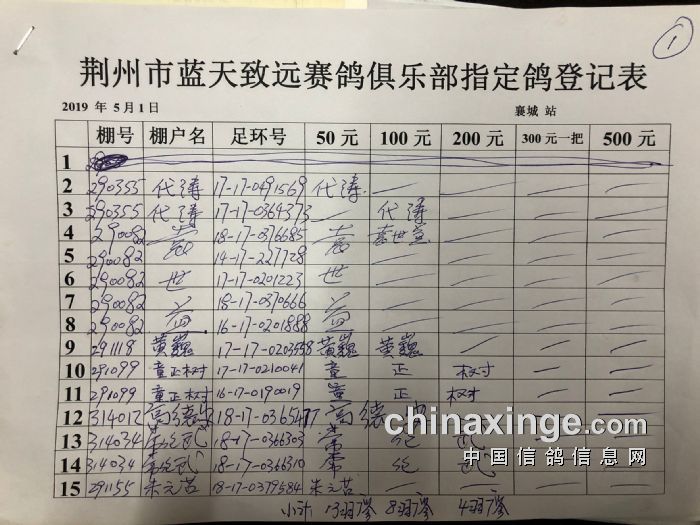 ①
荆州市蓝天致远赛鸽俱乐部指定鸽登记表
2019 年 5月1日 襄城 站
棚号 棚户名 足环号 50元 100元 200元 300元一把 500元
1
2 290355 代涛 17-17-0491569 代涛
3 290355 代涛 17-17-0364373 代涛
4 290082 袁 18-17-0376685 袁 袁世益
5 290082 14-17-227728
6 290082 世 17-17-0201223 世
7 290082 18-17-0370666
8 290082 益 16-17-0201888 益
9 291118 黄巍 17-17-0203558 黄巍 黄巍
10 291099 童正树 17-17-0210041 童 正 树
11 291099 童正树 16-17-0190019 童 正 树
12 314012 高德 18-17-0365477 高德
13 314034 18-17-0366303
14 314034 18-17-0366310
15 291155 朱元 18-17-0379584 朱元
小计 13羽 8羽 4羽
chinaxinge.com
中国信鸽信息网